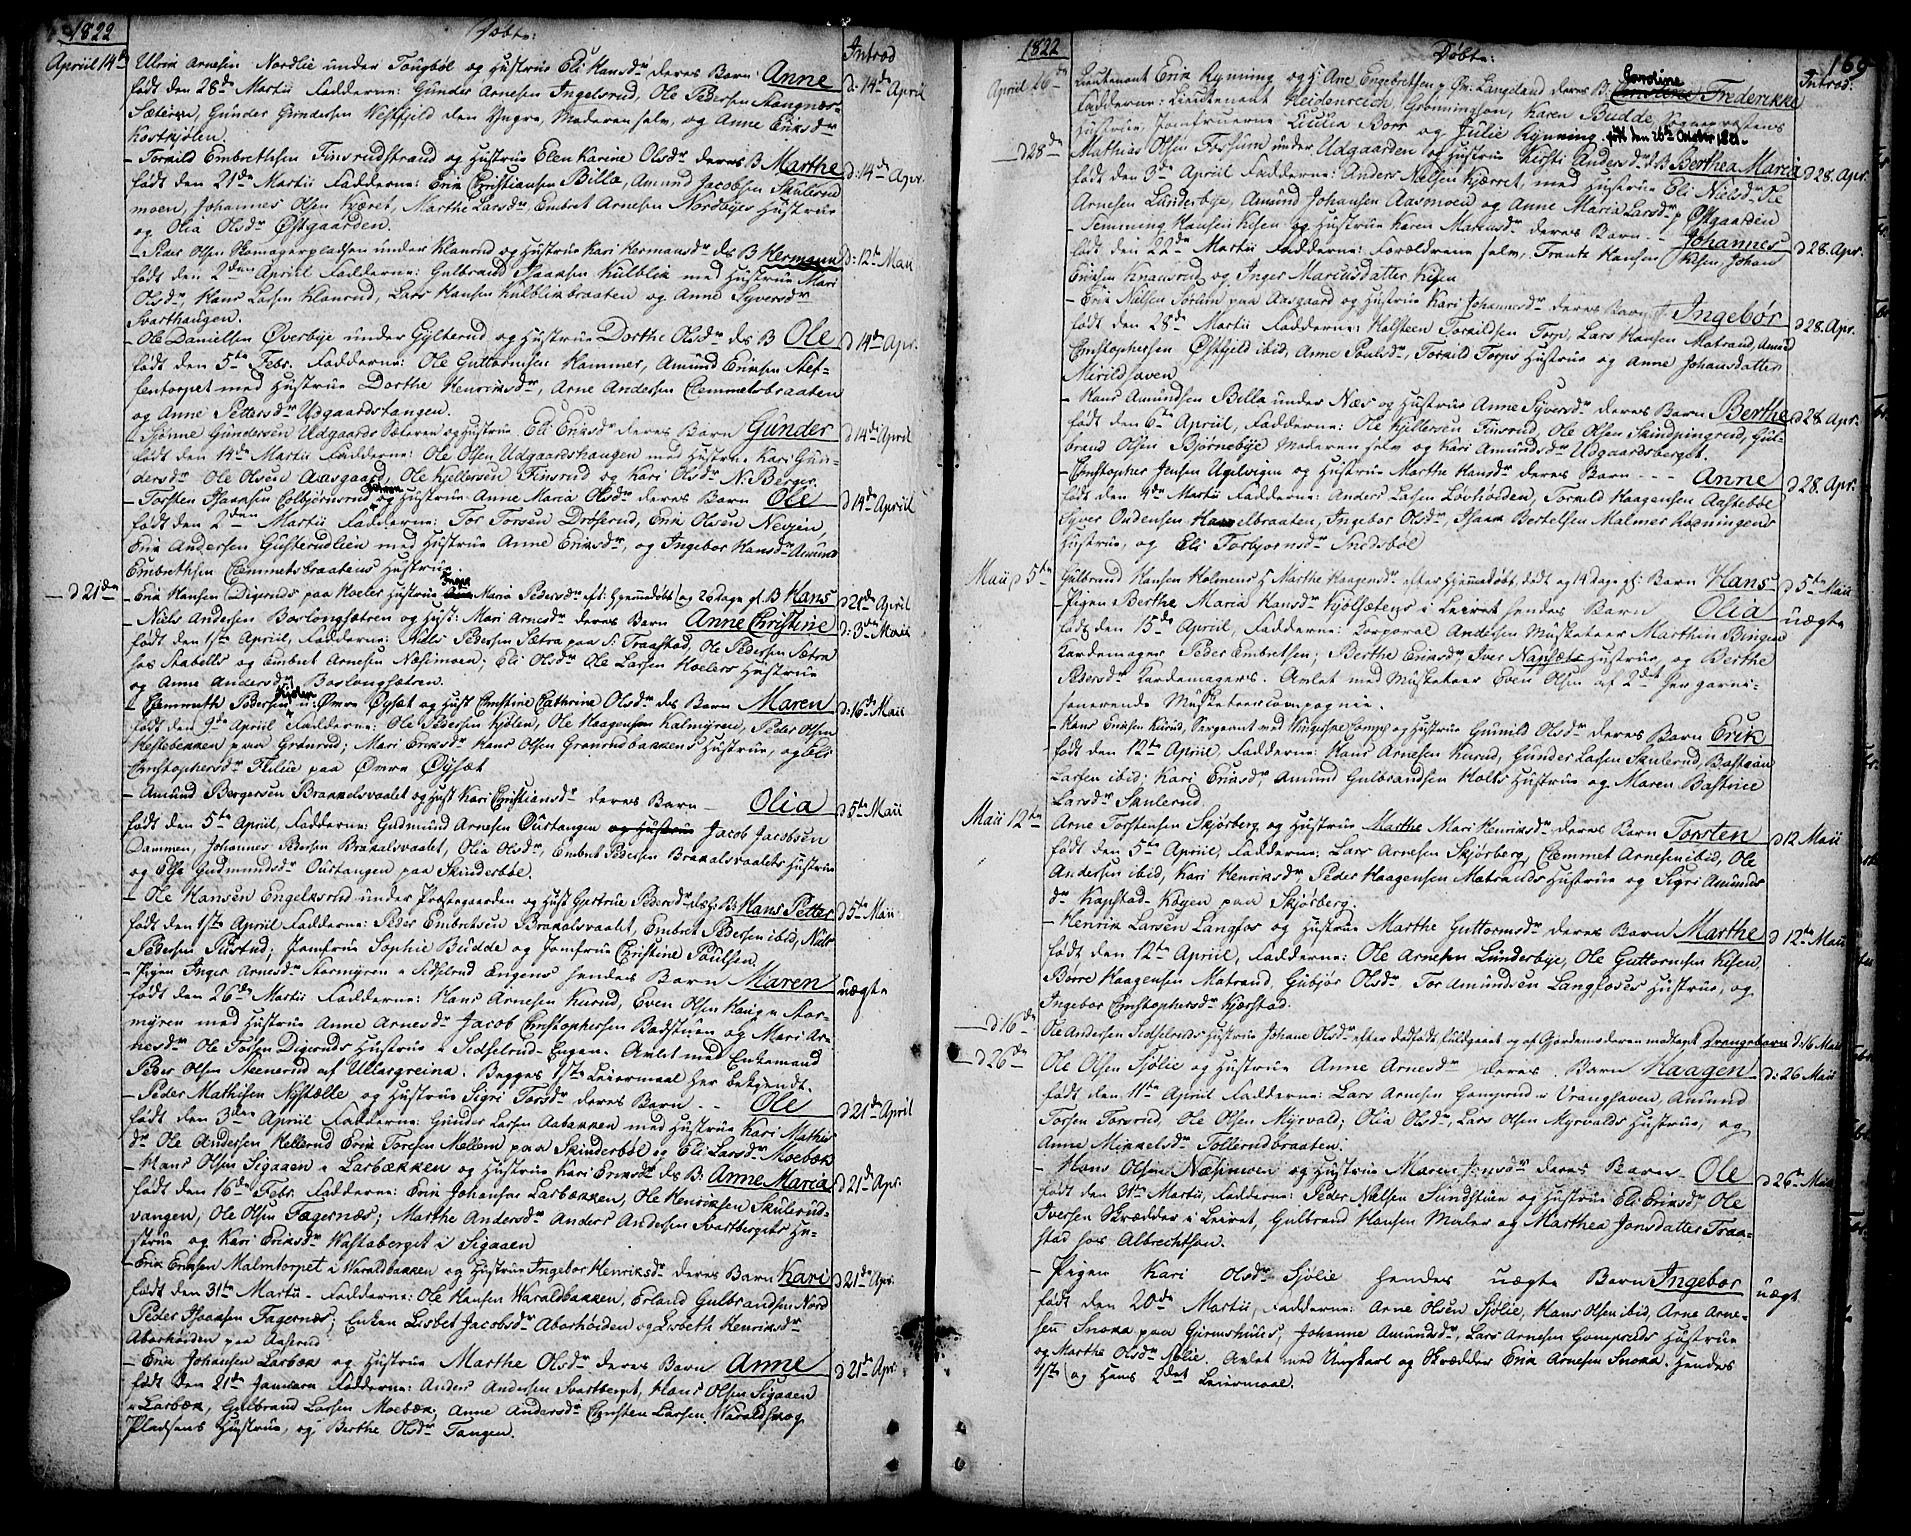 1822
Døbte:
Introd
Apriil 14de
Ulrik Arnesen Nordlie under Tougbøl og Hustrue Eli Hansdr deres Barn Anne
d. 14de April
født den 28de Martii Faderne: Gunder Arnesen Ingelsrud, Ole Pedersen Stangnæs-
Sæteren, Gunder Gundersen Vestfjeld den Yngre, Moderen selv, og Anne Eriksdr
Kostkjølen.
- Torkild Embrethsen Finsrudstrand og Hustrue Elen Karine Olsdr deres B Marthe
d. 14de Apr.
født den 21de Martii Fadderne: Erik Christiansen Billa, Amund Jacobsen Skulerud
moen, Johannes Olsen Kjæret, Marthe Larsdr, Embret Arnesen Nordbyes Hustrue
og Olia Olsdr Østgaarden.
- Peder Olsen Skomagerpladsen under Klanrud og Hustrue Kari Hermansdr ds B Hermann
d. 12te Maii
født den 2den Apriil Fadderne: Gulbrand Isaaksen Kulblik med Hustrue Mari
Olsdr, Hans Larsen Klanrud, Lars Hansen Kulblikbraaten og Anne Syversdr
Svarthaugen.
- Ole Danielsen Øverbye under Gylterud og Hustrue Dorthe Olsdr ds B Ole
d 14de Apr.
født den 5te Febr. Fadderne: Ole Guttormsen Hammer, Amund Eriksen Stef-
fentorpet med Hustrue Dorthe Henriksdr, Arne Andersen Clemmetsbraaten
og Anne Pettersdr Udgaardstangen.
- Tjønne Gundersen Udgaards Sæteren og Hustrue Eli Eriksdr deres Barn Gunder
d 14de April
født den 14de Martii Fadderne: Ole Olsen Udgaardshaugen med Hustrue Kari Gun-
dersdr Ole Olsen Aasgaard, Ole Kjellersen Finsrud og Kari Olsdr N. Berger.
- Torsten Isaaksen Esbjørnsrud og Hustrue Anne Maria Olsdr deres Barn Ole
d 14de Apriil
født den 2den Martii Fadderne: Tor Torsen Drøserud, Erik Olsen Nevjen,
Erik Andersen Gusterudlien med Hustrue Anne Eriksdr, og Ingebor Hansdr Amund
Embrethsen Clemmetsbraatens Hustrue.
- d 21de
- Erik Hansen Digerud paa Hoeler Hustrue Maria Pedersdr eft: Hjemmedøbt og 26 dage gl. B Hans
d 21de April
- Niels Andersen Baslongsætren og Hust: Mari Arnesdr deres Barn Anne Christine
d: 3de Maii
født den 1ste April, Fadderne: Niels Pedersen Sætra paa S: Traastad, Ole Pedersen Sætra
hos Stabells og Embret Arnesen Næsimoen; Eli Olsdr Ole Larsen Hoelers Hustrue
og Anne Andersdr Baslongsætren.
- Clemmeth Pedersen Kjølen u: Øvre Øysæt og Hust Christine Cathrine Olsdr des Barn Maren
d: 16de Maii
født den 9de April Fadderne: Ole Pedersen Kjølen, Ole Haagensen Kalmyren, Peder Olsen
Hestebekken paa Granrud; Mari Eriksdr Hans Olsen Granrudbakkens Hustrue, og Eli
Christophersdr Fiulie paa Øvre Øysæt
- Amund Bergersen Brakalsvaalet og Hust Kari Christiansdr deres Barn - Olia
d 5te Maii
født den 5te Apriil, Fadderne: Gudmund Arnesen Oustangen og Hustrue Jacob Jacobsen
Dammen, Johannes Persen Brakalsvaalet, Olia Olsdr, Embret Pedersen Brakalsvaalets Hustrue
og Else Gudmundsdr Oustangen paa Skinderbøe.
- Ole Hansen Engelksrud under Præstegaarden og Hust Gertrue Pedersdr ds B: Hans Petter
d 5te Maii
født den 1ste April Fadderne: Peder Embretsen Brakalsvaalet, Embret Pedersen ibid, Niels
Pedersen Tustrud; Jomfrue Sophie Budde og Jomfrue Christine Paulsen.
- Pigen Inger Arnesdr Stormyren i Sidselrud Engens hendes Barn Maren
uægte
født den 26de Martii Fadderne: Hans Arnesen Kurud, Even Olsen Haug u Stor-
myren med Hustrue Anne Arnesdr Jacob Christophersen Badstuen og Mari Ar-
nesdr Ole Torsen Digeruds Hustrue i Sidselrud-Engen. Avlet med Enkemand
Peder Olsen Steenerud af Ullargreina: Begges 1ste Leiermaal her bekjendt.
- Peder Mathisen Nystælle og Hustrue Sigri Torsdr deres Barn - - Ole
d 21de April
født den 3den April Fadderne: Gunder Larsen Aabakken med Hustrue Kari Mathis
dr Ole Andersen Kellerud Erik Toresen Mellem paa Skinderbøl og Eli Larsdr Moebæk
- Hans Olsen Sigaaen i Larbækken og Hustrue Kari Eriksdr ds B: Anne Maria
d 21de Apr.
født den 16de Febr. Fadderne: Erik Johansen Larbækken, Ole Henriksen Skulerud-
vangen, Ole Olsen Fagernæs; Marthe Andersdr Anders Andersen Svartbergets Hu-
strue og Kari Eriksdr Wastaberget i Sigaaen
- Erik Eriksen Malmtorpet i Waraldbækken og Hustrue Ingebor Henriksdr deres Barn Kari
d 21de Apr.
født den 31te Martii - Fadderne: Ole Hansen Waraldbækken, Erland Gulbrandsen Nord
Peder Isaaksen Fagernæs; Enken Lisbet Jacobsdr Aborhøiden og Lisbeth Henriksdr
Aborhøiden paa Aaserud
- Erik Johansen Larbæk og Hustrue Marthe Olsdr deres Barn Anne
d 21de Apr.
født den 21de Januarii Fadderne: Anders Andersen Svartberget, Hans Olsen Sigaaen
i Larbæk, Gulbrand Larsen Moebæk; Anne Andersdr Christen Larsen Waraldskog
Pladsens Hustrue, og Berthe Olsdr Tangen.
1822
Døbte:
169
Introd:
April 26de
Lieutenant Erik Rynning og H. Ane Engebretsen p Øv. Langeland deres B. Caroline Frederikke
Fadderne: Lieutenant Heidenreich, Grønningson, Karen Budde, Sogneprestens
Hustrue, Jomfruerne Lucilia Borr og Julie Rynning født den 26de October 1821.
- d 28de
Mathias Olsen Fossum under Udgaarden og Hustrue Kersti Andersdr B Berthea Maria
d 28. Apr.
født den 3de Apriil Fadderne: Anders Nielsen Kjærret, med Hustrue Eli Nielsdr, Ole
Arnesen Lunderbye, Amund Johansen Aasmoen og Anne Maria Larsdr p Østgaarden
- Femming Hansen Kisen og Hustrue Karen Marcusdr deres Barn - Johannes
d 28. Apr.
født den 22de Martii Fadderne: Forældrene selv, Frantz Hansen Kisen, Johan
Eriksen Knansrud og Inger Marcusdatter Kisen
- Erik Nilsen Sørlund paa Aasgaard og Hustrue Kari Johannesdr deres Barn Ingebor
d 28. Apr.
født den 28de Martii Fadderne: Halsteen Torkildsen Torp, Lars Hansen Matrand, Amund
Christophersen Østfjeld ibid, Anne Poulsdr, Torkild Torps Hustrue og Anne Johansdatter
Mirildhaven
- Hans Amundsen Billa under Næs og Hustrue Anne Syversdr deres Barn Berthe
d 28 Apr.
født den 6te Apriil, Fadderne: Ole Kjellersen Finsrud, Ole Olsen Skindpingrud, Gul-
brand Olsen Bjørnebye Moderen selv og Kari Amundsdr Udgaardsberget.
- Christopher Jensen Ugelvigen og Hustrue Marthe Hansdr deres Barn - - - Anne
d 28. Apr.
født den 4de Martii Fadderne: Anders Larsen Løvhøiden, Torkild Haagensen Aastebøl
Syver Ondensen Hanelbraaten, Ingebor Olsdr, Isaak Bertelsen Malmerløsningens
Hustrue, og Eli Torbjornsdr Snedsbøl
Maii d 5te
Gulbrand Hansen Holmens H Marthe Haagensdr efter Hjemmedøbt, født og 14 dage gl: Barn Hans
d 5te Maii
- Pigen Berthe Maria Hansdr Kjølsætens i Leiret hendes Barn Olia
uægte
født den 15de Apriil, Fadderne: Korporal Andersen Musketeer Marthin Bingen
Kardemager Peder Embretsen; Berthe Eriksdr, Iver Næpsæts Hustrue, og Berthe
Pedersdr Kardemagers. Avlet med Musketeer Even Olsen af 2det her garni-
sonerende Musketeercompagnie.
- Hans Eriksen Kurud, Sergeant ved Vingerske Comp og Hustrue Gunild Olsdr deres Barn Erik
født den 12te Apriil, Fadderne: Hans Arnesen Kurud, Gunder Larsen Skulerud, Bastian
Larsen ibid; Kari Eriksdr, Amund Gulbrandsen Holts Hustrue og Maren Bastrine
Larsdr Skulerud.
Maii 12te
Arne Torstensen Skjørberg og Hustrue Marthe Mari Henriksdr deres Barn Torsten
d 12 Maii
født den 5te Apriil, Fadderne: Lars Arnesen Skjørberg, Clemmet Arnesen ibid, Ole
Andersen ibid, Kari Henriksdr, Peder Haagensen Matrands Hustrue og Sigri Amunds
dr Kapstad-Køyen paa Skjørberg.
- Henrik Larsen Langfos og Hustrue Marthe Guttormsdr deres Barn Marthe
d 12te Maii
født den 12te Apriil, Fadderne: Ole Arnesen Lunderbye, Ole Guttormsen Kisen,
Borre Haagensen Matrand, Gubjør Olsdr, Tor Amundsen Langfoses Hustrue, og
Ingebor Christophersdr Kjærstad.
- d 16de
Ole Andersen Sidselruds Hustrue Johane Olsdr efter dødfødt, fuldgaaet og af Gjordemoderen modtaget Drengebarn
d: 16 Maii
- d 26de
Ole Olsen Sjølie og Hustrue Anne Arnesdr deres Barn Haagen
d: 26 Maii
født den 11te April Fadderne: Lars Arnesen Gomsrud i Vranghaven, Amund
Torsen Torsrud, Ole Olsen Myrvald; Olia Olsdr, Lars Olsen Myrvalds Hustrue; og
Anne Mikkelsdr Tollerudbraaten.
- Hans Olsen Næsimoen og Hustrue Maren Jonsdr deres Barn - Ole
d 26te Maii
født den 31te Martii, Fadderne: Peder Nielsen Sundstuen og Hustrue Eli Eriksdr, Ole
Iversen Skrædder i Leiret, Gulbrand Hansen Maler og Marthea Jonsdatter Traa-
stad hos Albrechtson.
- Pigen Kari Olsdr Sjølie hendes uægte Barn Ingebor
uægt.
født den 20de Martii, Fadderne: Arne Olsen Sjølie, Hans Olsen ibid, Arne Arne-
sen Snoka paa Girmshuus; Johanne Amundsdr, Lars Arnesen Gomsruds Hustrue
og Marthe Olsdr Sjølie. Avlet med Ungkarl og Skrædder Erik Arnesen Snoka. Hendes
1ste og Hans 2det Leiermaal.